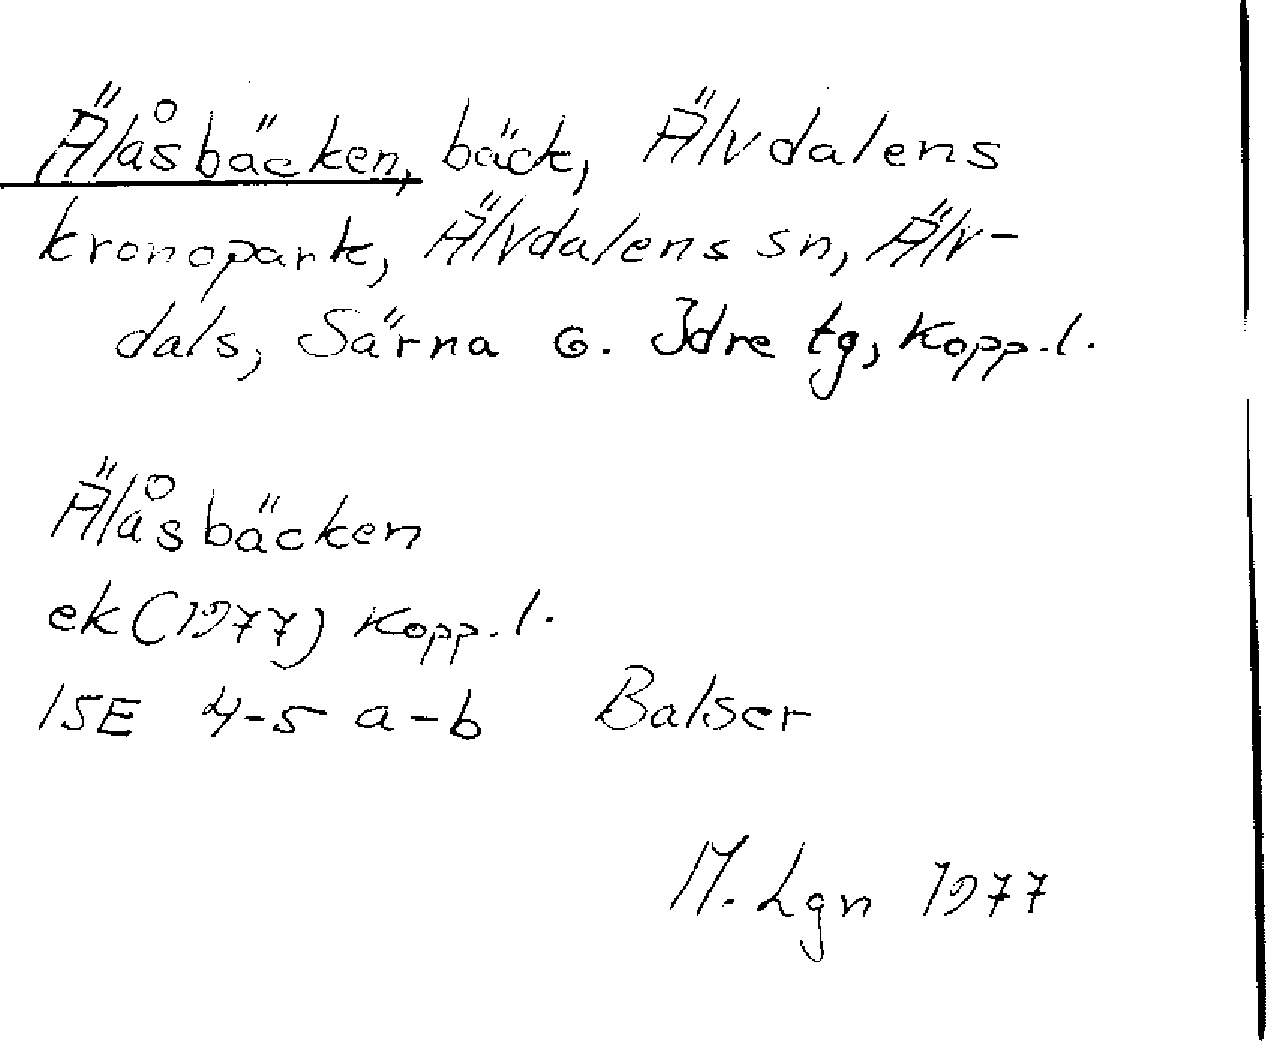 Älåsbäcken, bäck, Älvdalens
kronopark, Älvdalens sn, Älv-
dals, Särna o. Idre tg, Kopp. l.
Älåsbäcken
ek (1977) Kopp. l.
15E 4-5 a-b Balser
M. Lgn 1977